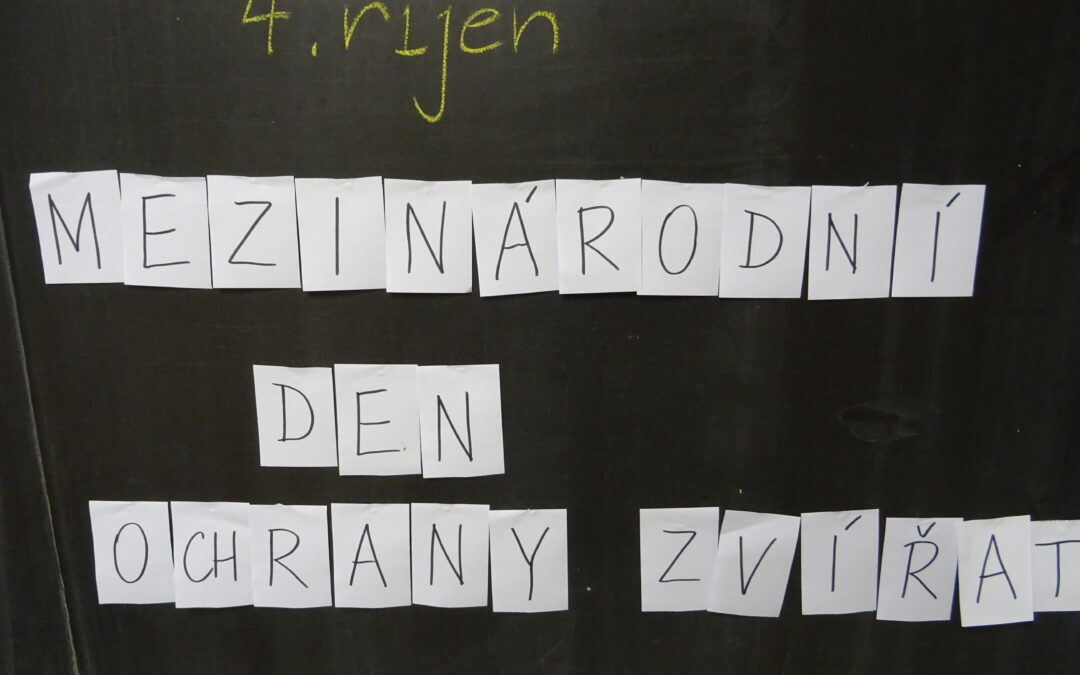 4. říjen
MEZINÁRODNÍ
DEN
OCHRANY ZVÍŘAT